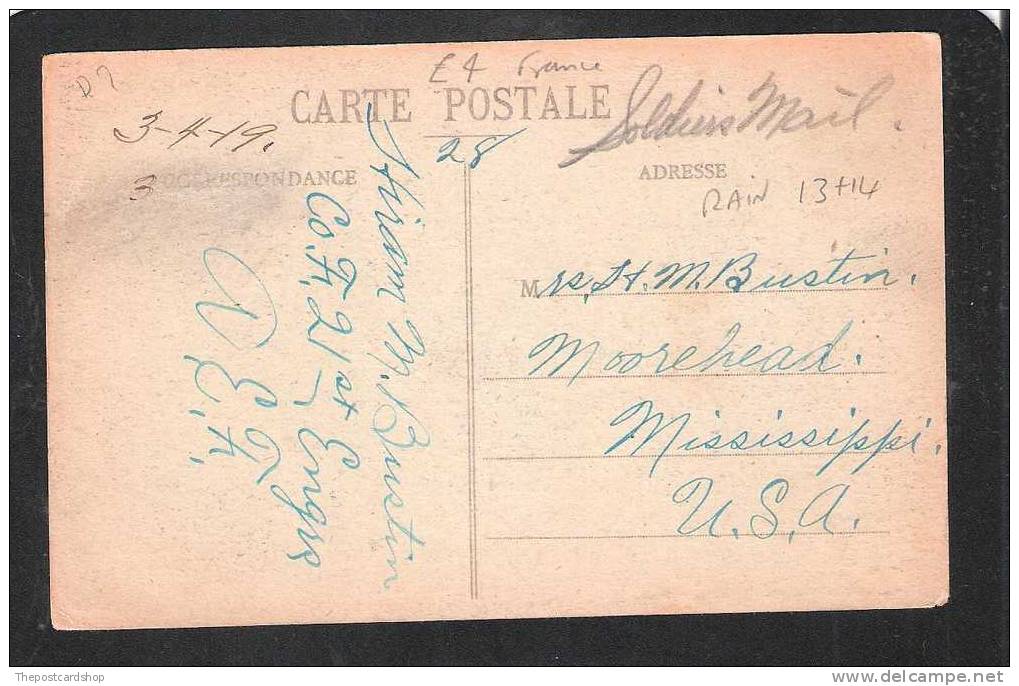 D7
£4 France
CARTE POSTALE
Soldiers Mail.
3-4-19.
28
3
CORRESPONDANCE
ADRESSE
RAIN 13+14
Hiram M. Bustin
Co. F, 21st Engrs
A. E. F.
Mrs. H. M. Bustin.
Moorehead.
Mississippi.
U.S.A.
Thepostcardshop
www.delcampe.net